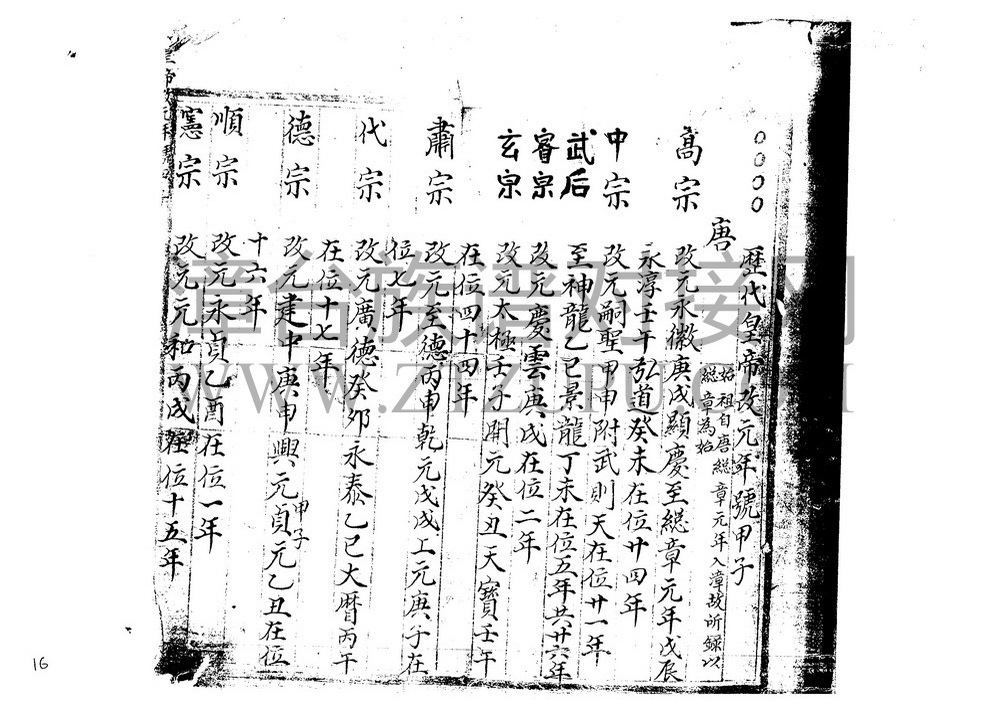 歷代皇帝改元年號甲子
唐
始祖自唐總章元年入漳故所錄以
總章為始
高宗
改元永徽庚戌顯慶至總章元年戊辰
永淳壬午弘道癸未在位廿四年
中宗
改元嗣聖甲申附武則天在位廿一年
武后
至神龍乙巳景龍丁未在位五年共廿六年
睿宗
改元慶雲庚戌在位二年
玄宗
改元太極壬子開元癸丑天寶壬午
在位四十四年
肅宗
改元至德丙申乾元戊戌上元庚子在
位七年
代宗
改元廣德癸卯永泰乙巳大曆丙午
在位十七年
德宗
改元建中庚申興元甲子貞元乙丑在位
十六年
順宗
改元永貞乙酉在位一年
憲宗
改元元和丙戌在位十五年
漳台族谱对接网
WWW.ZTZUPU.COM
16